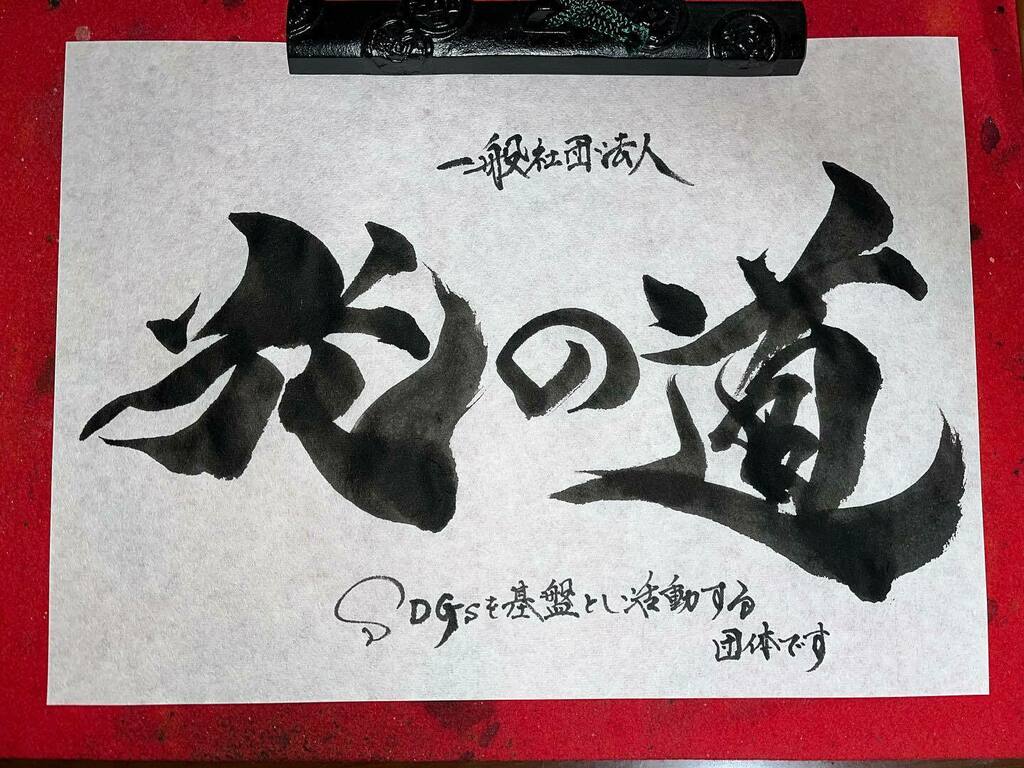 一般社団法人
光の道
SDGsを基盤とし活動する
団体です